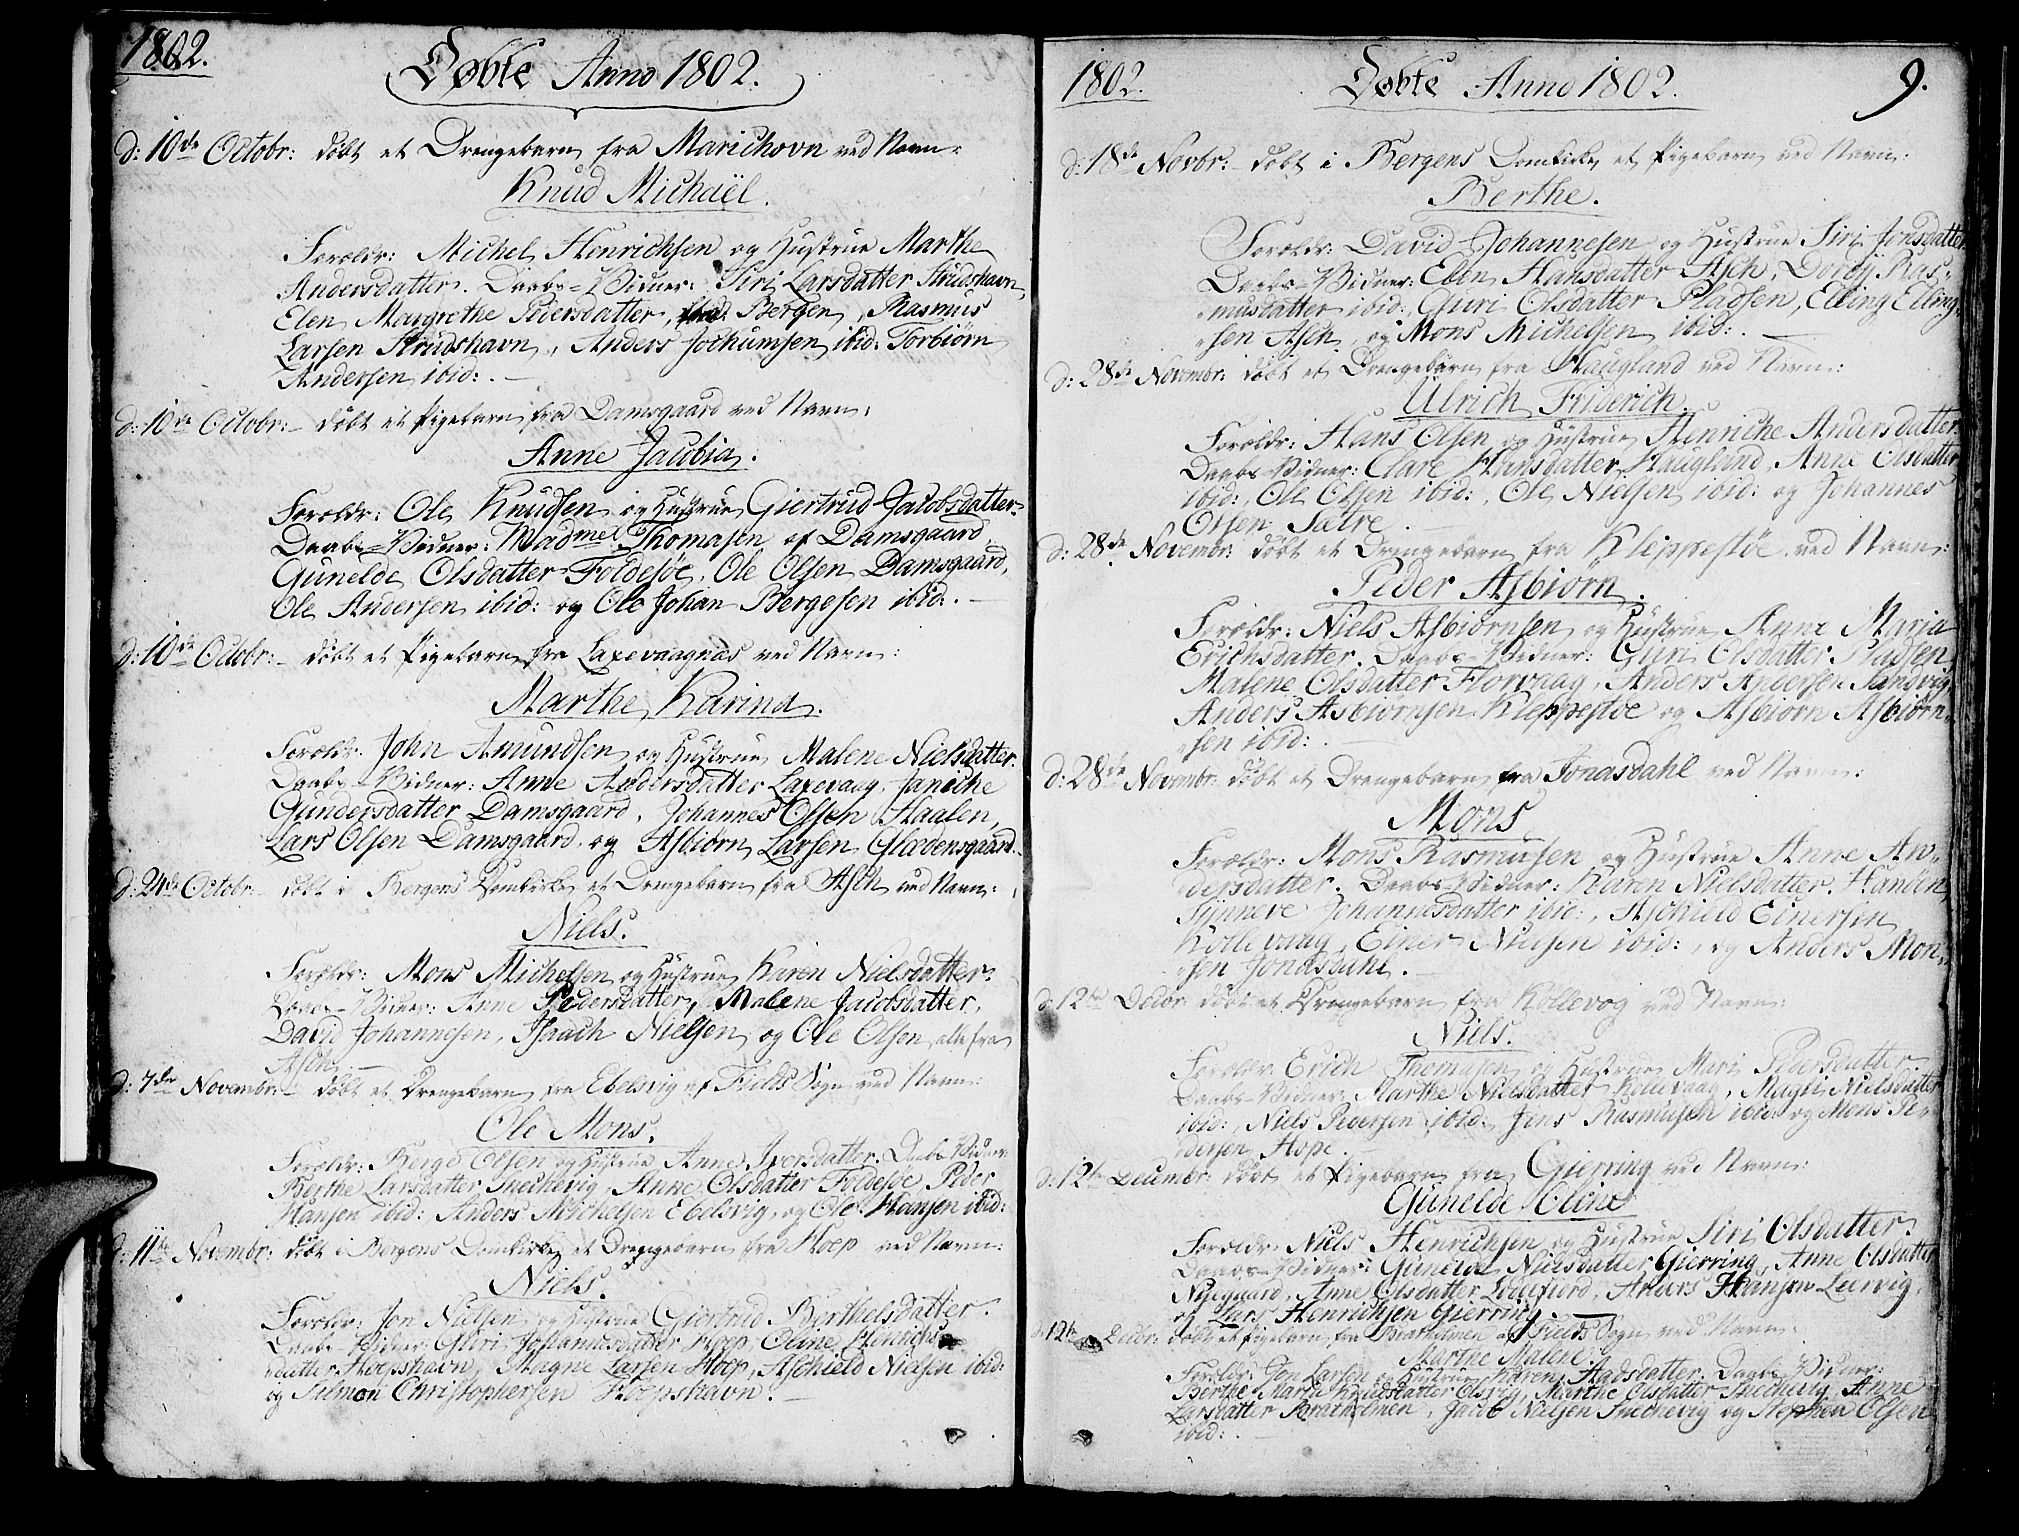 1802.
Døbte Anno 1802.
d: 10de Octobr: døbt et Drengebarn fra Marichovn ved Navn:
Knud Michaël.
Forældr: Michel Henrichsen og Hustrue Marthe
Andersdatter. Daabs-Vidner: Siri Larsdatter Strudshavn,
Elen Margrethe Pedersdatter, Bergen, Rasmus
Larsen Strudshavn, Anders Jochumsen ibid: Torbiørn
Andersen ibid: . —
d: 10de Octobr: – døbt et Pigebarn fra Damsgaard ved Navn:
Anne Jacobia.
Forældr: Ole Knudsen og Hustrue Giertrud Jacobsdatter.
Daabs-Vidner: Madmel Thomasen af Damsgaard,
Gunelde Olsdatter Foldesøe, Ole Olsen Damsgaard,
Ole Andersen ibid: og Ole Johan Bergesen ibid: . —
d: 10de Octobr: – døbt et Pigebarn fra Laxevaagnæs ved Navn:
Marthe Karina.
Forældr: John Amundsen og Hustrue Malene Nielsdatter.
Daabs-Vidner: Anne Andersdatter Laxevaag, Janiche
Gundersdatter Damsgaard, Johannes Olsen Haalen,
Lars Olsen Damsgaard, og Asbiørn Larsen Gloedensgaard.
d: 24de Octobr: døbt i Bergens Domkirke et Drengebarn fra Asch ved Navn:
Niels.
Forældr: Mons Michelsen og Hustrue Karen Nielsdatter.
Daabs-Vidner: Anne Pedersdatter, Malene Jacobsdatter,
David Johannesen, Isaach Nielsen og Ole Olsen alle fra
Asch. —
d: 7de Novembr: – døbt et Drengebarn fra Ebelsvig af Fields Sogn ved Navn:
Ole Mons.
Forældr: Berge Olsen og Hustrue Anne Iversdatter. Daabs-Vidner:
Berthe Larsdatter Snechevig, Anne Olsdatter Foldesøe, Peder
Hansen ibid:, Anders Michelsen Ebelsvig, og Ole Hansen ibid:
d: 11te Novembr: døbt i Bergens Domkirke et Drengebarn fra Hoep ved Navn:
Niels.
Forældr: Jon Nielsen og Hustrue Giertrud Berthelsdatter.
Daabs-Vidner: Guri Johannesdatter Hoep, Oline Henrichs-
datter Hoepshavn, Magne Larsen Hoep, Aschield Nielsen ibid:
og Salmon Christophersen Hoepshavn. —
1802.
Døbte Anno 1802.
9.
d: 18de Novbr: – døbt i Bergens Domkirke et Pigebarn ved Navn:
Berthe.
Forældr: David Johannesen og Hustrue Siri Jonsdatter.
Daabs-Vidner: Elen Hansdatter Asch, Dordij Ras-
musdatter ibid:, Guri Olsdatter Pladsen, Elling Elling-
sen Asch, og Mons Michelsen ibid: . —
d: 28de Novembr: døbt et Drengebarn fra Haugland ved Navn:
Ulrich Friderich.
Forældr: Hans Olsen og Hustrue Henriche Andersdatter.
Daabs-Vidner: Clare Hansdatter Haugland, Anne Olsdatter
ibid:, Ole Olsen ibid:, Ole Nielsen ibid: og Johannes
Olsen Sætre. —
d: 28de Novembr: døbt et Drengebarn fra Kleppestøe ved Navn:
Peder Asbiørn.
Forældr: Niels Asbiørnsen og Hustrue Anne Maria
Erichsdatter. Daabs-Vidner: Guri Olsdatter Pladsen,
Malene Olsdatter Florvaag, Anders Andersen Sandvig,
Anders Asbiørnsen Kleppestøe og Asbiørn Asbiørn-
sen ibid: . —
d: 28de Novembr: døbt et Drengebarn fra Jonasdahl ved Navn:
Mons
Forældr: Mons Rasmusen og Hustrue Anne An-
dersdatter. Daabs-Vidner: Karen Nielsdatter Hanøen,
Synneve Johannesdatter ibid:, Aschield Einersen
Kollevaag, Einer Nielsen ibid:, og Anders Mon-
sen Jonasdahl. —
d: 12te Decbr: døbt et Drengebarn fra Kollevog ved Navn:
Niels.
Forældr: Erich Thomasen og Hustrue Mari Pedersdatter.
Daabs-Vidner: Marthe Nielsdatter Kollevaag, Magli Nielsdatter
ibid:, Niels Pedersen ibid: Jens Rasmusen ibid: og Mons Pe-
dersen Hope. —
d: 12te Decembr: døbt et Pigebarn fra Gierring ved Navn:
Gunelde Oline
Forældr: Niels Henrichsen og Hustrue Siri Olsdatter.
Daabs-Vidner: Gunelde Nielsdatter Gierring, Anne Olsdatter
Nygaard, Anne Olsdatter, Anders Hansen Leervig,
og Lars Henrichsen Gierring.
d: 12te Decbr: døbt et Pigebarn fra Bratholmen af Fields Sogn ved Navn:
Marthe Malene.
Forældr: Jon Larsen og Hustrue Karen Aadsdatter. Daabs-Vidner:
Berthe Marie Knudsdatter Olsvig, Marthe Olsdatter Snechevig, Anne
Larsdatter Bratholmen, Jacob Nielsen Snechevig og Stephen Olsen
ibid: . —